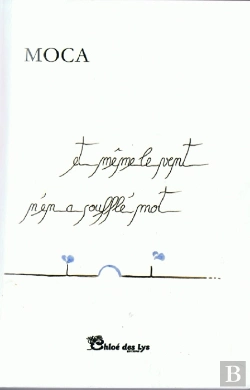 MOCA
et même le vent
n'en a soufflé mot
Chloé des Lys
B